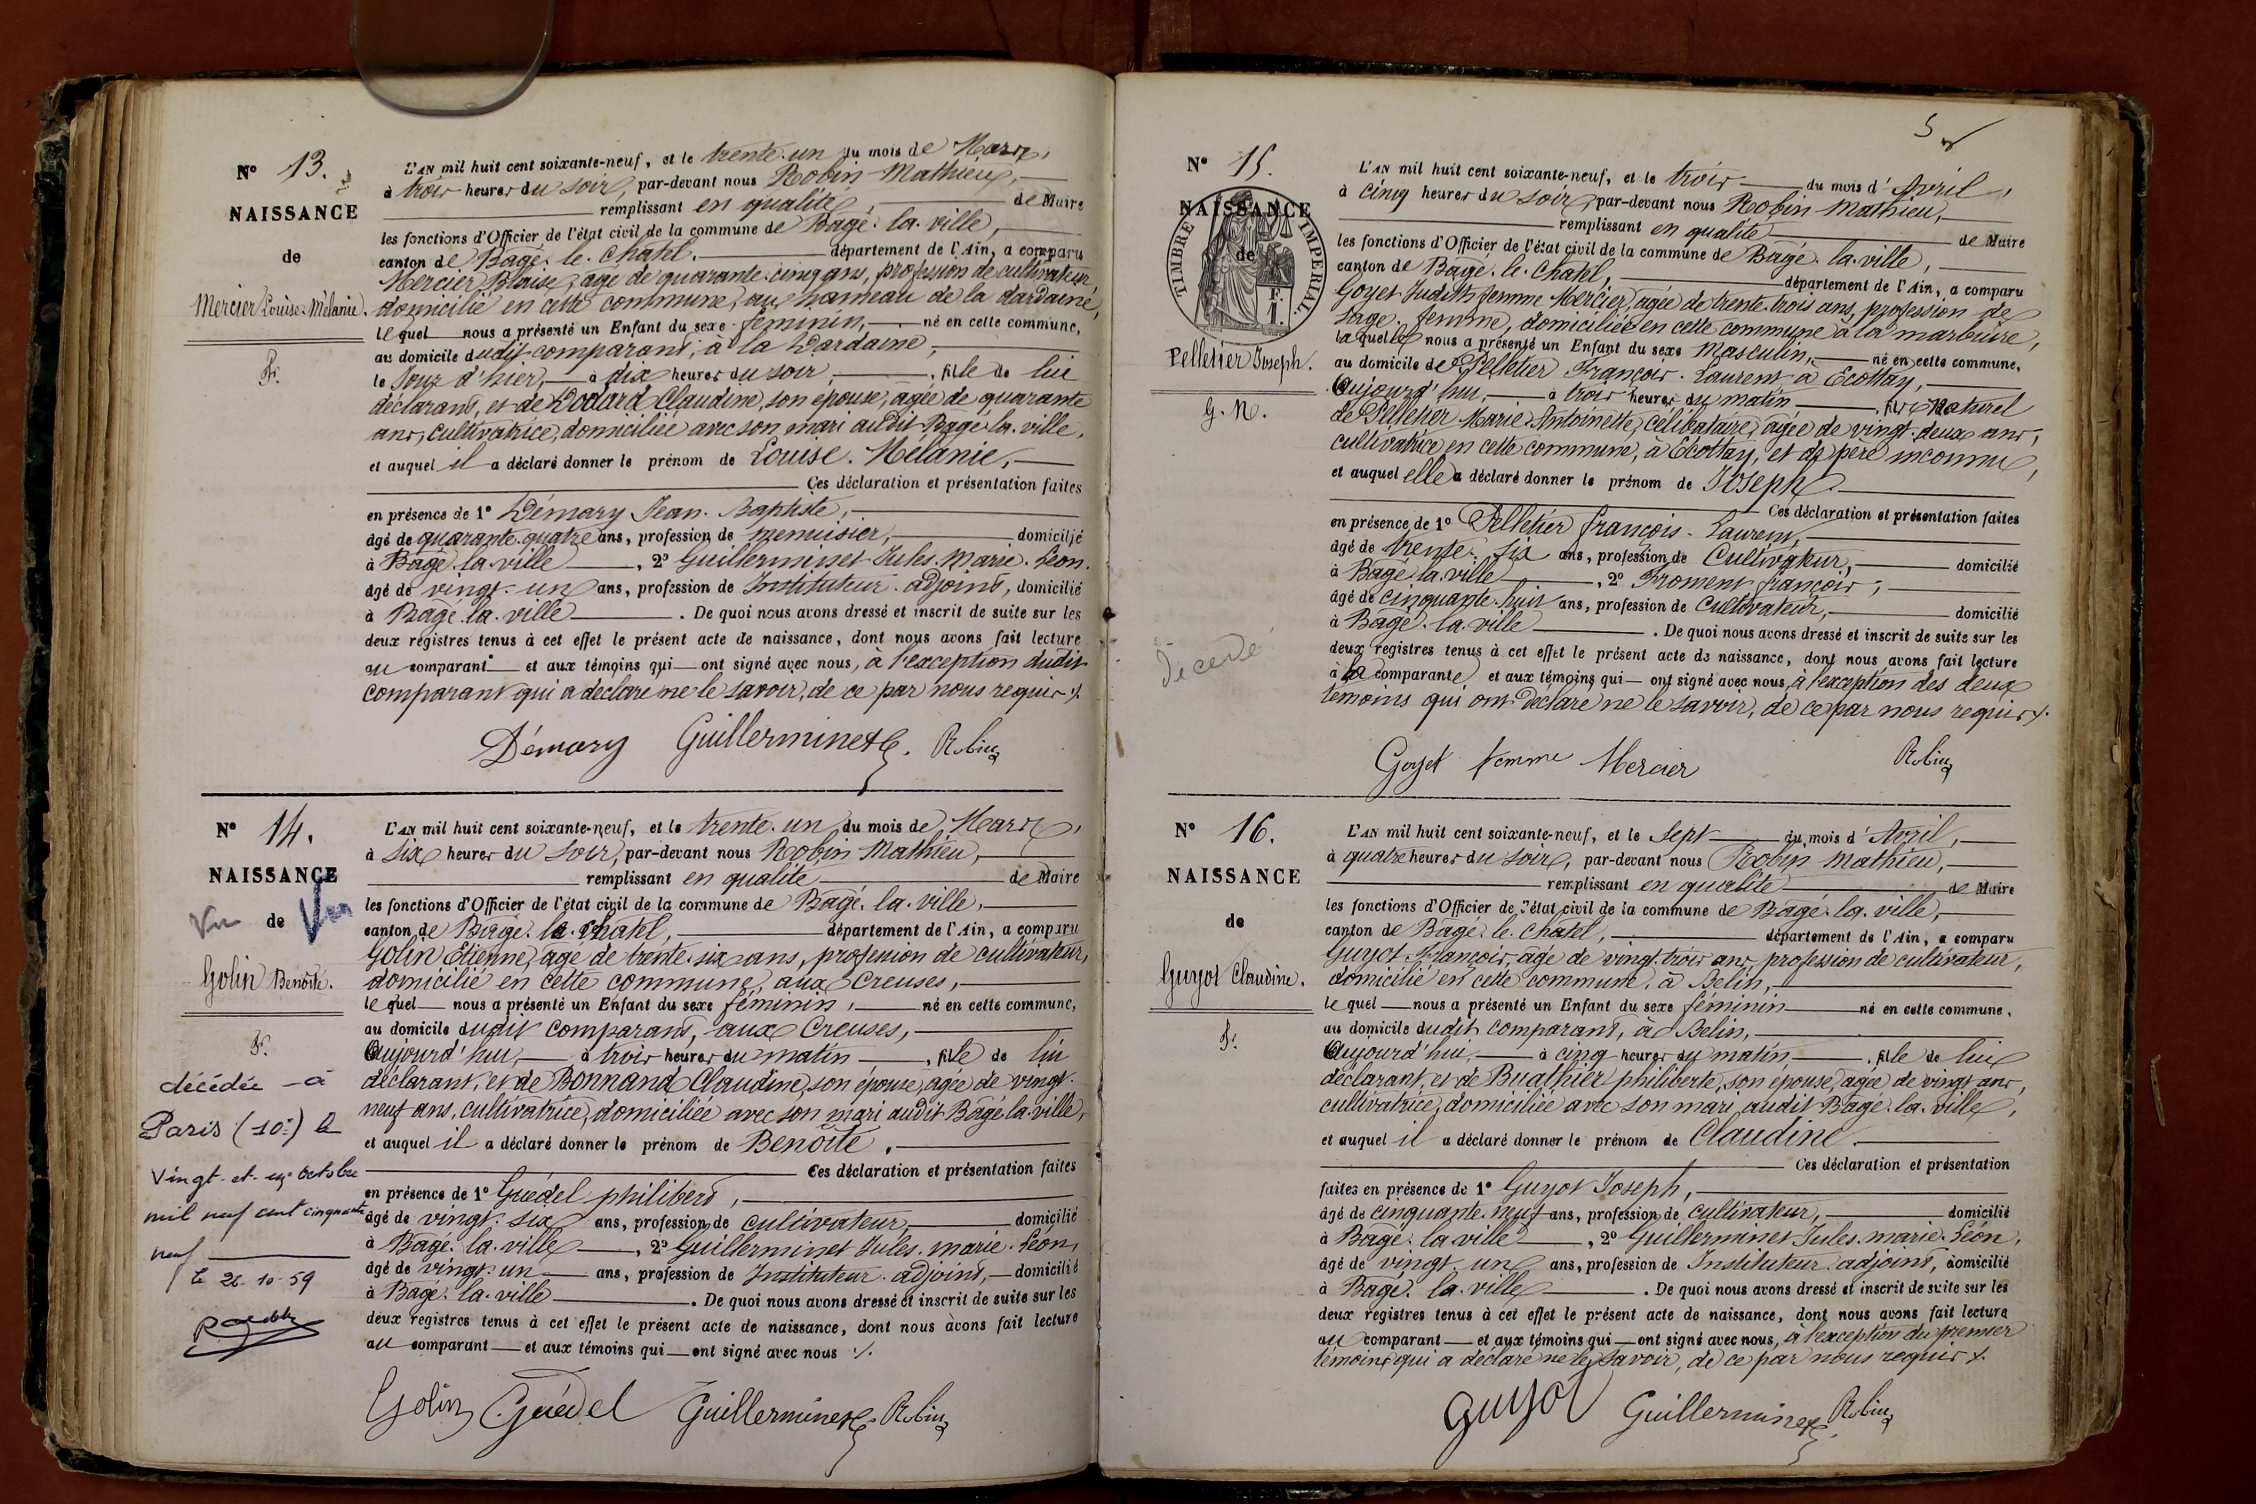 N° 13.
NAISSANCE
de
Mercier Louise-Mélanie.
F.
L'AN mil huit cent soixante-neuf, et le trente-un du mois de Mars,
à trois heures du soir, par-devant nous Robin Mathieu,
remplissant en qualité de Maire
les fonctions d'Officier de l'état civil de la commune de Bagé-la-ville,
canton de Bagé-le-Chatel, département de l'Ain, a comparu
Mercier Blaise, âgé de quarante-cinq ans, profession de cultivateur
domicilié en cette commune, au hameau de la dardaine,
lequel nous a présenté un Enfant du sexe féminin, né en cette commune,
au domicile dudit comparant, à la Dardaine,
le Jour d'hier, à dix heures du soir, fille de lui
déclarant, et de Dodard Claudine, son épouse, âgée de quarante
ans, cultivatrice, domiciliée avec son mari audit Bagé-la-ville,
et auquel il a déclaré donner le prénom de Louise-Mélanie,
Ces déclaration et présentation faites
en présence de 1° Démary Jean-Baptiste,
âgé de quarante-quatre ans, profession de menuisier, domicilié
à Bagé-la-ville, 2° Guillerminet Jules-Marie-Léon.
âgé de vingt-un ans, profession de Instituteur-adjoint, domicilié
à Bagé-la-ville. De quoi nous avons dressé et inscrit de suite sur les
deux registres tenus à cet effet le présent acte de naissance, dont nous avons fait lecture
au comparant et aux témoins qui ont signé avec nous, à l'exception dudit
comparant qui a déclaré ne le savoir, de ce par nous requis ./.
Démary Guillerminet Robin
N° 14.
NAISSANCE
de
Vu Vu
Golin Benoîte.
F.
décédée à
Paris (10e) le
vingt-et-un octobre
mil neuf cent cinquante
neuf
le 26-10-59
L'AN mil huit cent soixante-neuf, et le trente-un du mois de Mars,
à six heures du soir, par-devant nous Robin Mathieu,
remplissant en qualité de Maire
les fonctions d'Officier de l'état civil de la commune de Bagé-la-ville,
canton de Bagé-le-Chatel, département de l'Ain, a comparu
Golin Etienne, âgé de trente-six ans, profession de cultivateur,
domicilié en cette commune, aux Creuses,
lequel nous a présenté un Enfant du sexe féminin, né en cette commune,
au domicile dudit comparant, aux Creuses,
Aujourd'hui, à trois heures du matin, fille de lui
déclarant, et de Bonnand Claudine, son épouse, âgée de vingt-
neuf ans, cultivatrice, domiciliée avec son mari audit Bagé-la-ville,
et auquel il a déclaré donner le prénom de Benoîte.
Ces déclaration et présentation faites
en présence de 1° Guédel philibert,
âgé de vingt-six ans, profession de cultivateur, domicilié
à Bagé-la-ville, 2° Guillerminet Jules-marie-Léon,
âgé de vingt-un ans, profession de Instituteur-adjoint, domicilié
à Bagé-la-ville. De quoi nous avons dressé et inscrit de suite sur les
deux registres tenus à cet effet le présent acte de naissance, dont nous avons fait lecture
au comparant et aux témoins qui ont signé avec nous ./.
Golin Guédel Guillerminet Robin
5
N° 15.
NAISSANCE
de
TIMBRE IMPERIAL
F.
1.
Pelletier Joseph.
G. N.
Décédé
L'AN mil huit cent soixante-neuf, et le trois du mois d'Avril,
à cinq heures du soir, par-devant nous Robin Mathieu,
remplissant en qualité de Maire
les fonctions d'Officier de l'état civil de la commune de Bagé-la-ville,
canton de Bagé-le-Chatel, département de l'Ain, a comparu
Goyet Judith femme Mercier, âgée de trente-trois ans, profession de
Sage-femme, domiciliée en cette commune à la marbrure,
laquelle nous a présenté un Enfant du sexe masculin, né en cette commune,
au domicile de Pelletier François-Laurent à Ecottay,
Aujourd'hui, à trois heures du matin, fils Naturel
de Pelletier Marie-Antoinette, célibataire, âgée de vingt-deux ans,
cultivatrice en cette commune, à Ecottay, et de père inconnu,
et auquel elle a déclaré donner le prénom de Joseph
Ces déclaration et présentation faites
en présence de 1° Pelletier françois-Laurent,
âgé de trente-six ans, profession de Cultivateur, domicilié
à Bagé-la-ville, 2° Froment françois,
âgé de cinquante-huit ans, profession de cultivateur, domicilié
à Bagé-la-ville. De quoi nous avons dressé et inscrit de suite sur les
deux registres tenus à cet effet le présent acte de naissance, dont nous avons fait lecture
à la comparante et aux témoins qui ont signé avec nous, à l'exception des deux
témoins qui ont déclaré ne le savoir, de ce par nous requis ./.
Goyet femme Mercier Robin
N° 16.
NAISSANCE
de
Guyot Claudine.
F.
L'AN mil huit cent soixante-neuf, et le sept du mois d'Avril,
à quatre heures du soir, par-devant nous Robin Mathieu,
remplissant en qualité de Maire
les fonctions d'Officier de l'état civil de la commune de Bagé-la-ville,
canton de Bagé-le-Chatel, département de l'Ain, a comparu
Guyot François, âgé de vingt-trois ans, profession de cultivateur,
domicilié en cette commune, à Belin,
lequel nous a présenté un Enfant du sexe féminin né en cette commune,
au domicile dudit comparant, à Belin,
Aujourd'hui, à cinq heures du matin, fille de lui
déclarant, et de Buathier philiberte, son épouse, âgée de vingt ans,
cultivatrice, domiciliée avec son mari, audit Bagé-la-ville,
et auquel il a déclaré donner le prénom de Claudine.
Ces déclaration et présentation
faites en présence de 1° Guyot Joseph,
âgé de cinquante-neuf ans, profession de cultivateur, domicilié
à Bagé-la-ville, 2° Guillerminet Jules-marie-Léon,
âgé de vingt-un ans, profession de Instituteur-adjoint, domicilié
à Bagé-la-ville. De quoi nous avons dressé et inscrit de suite sur les
deux registres tenus à cet effet le présent acte de naissance, dont nous avons fait lecture
au comparant et aux témoins qui ont signé avec nous, à l'exception du premier
témoin qui a déclaré ne le savoir, de ce par nous requis ./.
Guyot Guillerminet Robin